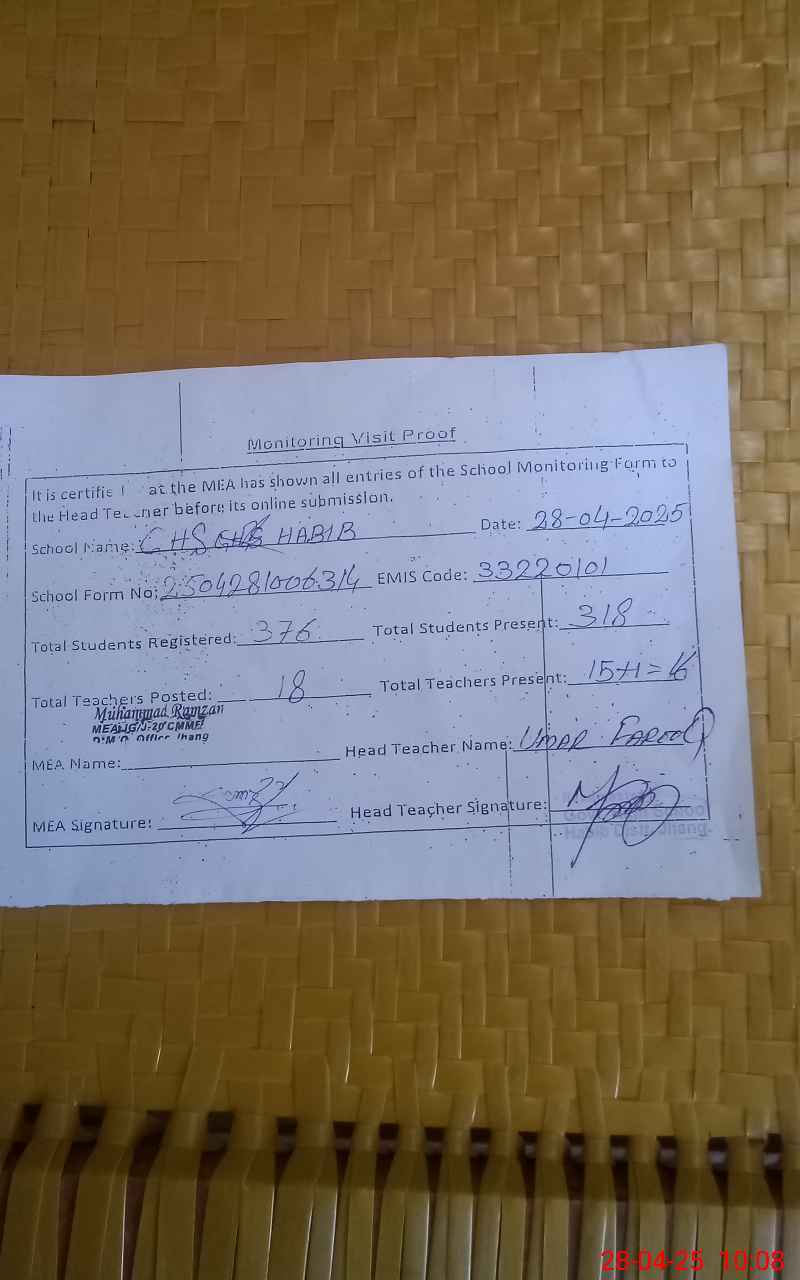 Monitoring Visit Proof
It is certifie at the MEA has shown all entries of the School Monitoring Form to
the Head Te ner before its online submission.
School Name: GHS HABIB Date: 28-04-2025
School Form No: 2504281006314 EMIS Code: 33220101
Total Students Registered: 376 Total Students Present: 318
Total Teachers Posted: 18 Total Teachers Present: 15+1=16
Muhammad Ramzan
D.M.O. Office Jhang
MEA Name: Head Teacher Name: UMAR FAROOQ
MEA Signature: Head Teacher Signature:
School
Habib Distt. Jhang.
28-04-25 10:08